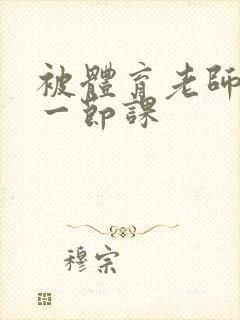 被體育老師
一節課
穆宗